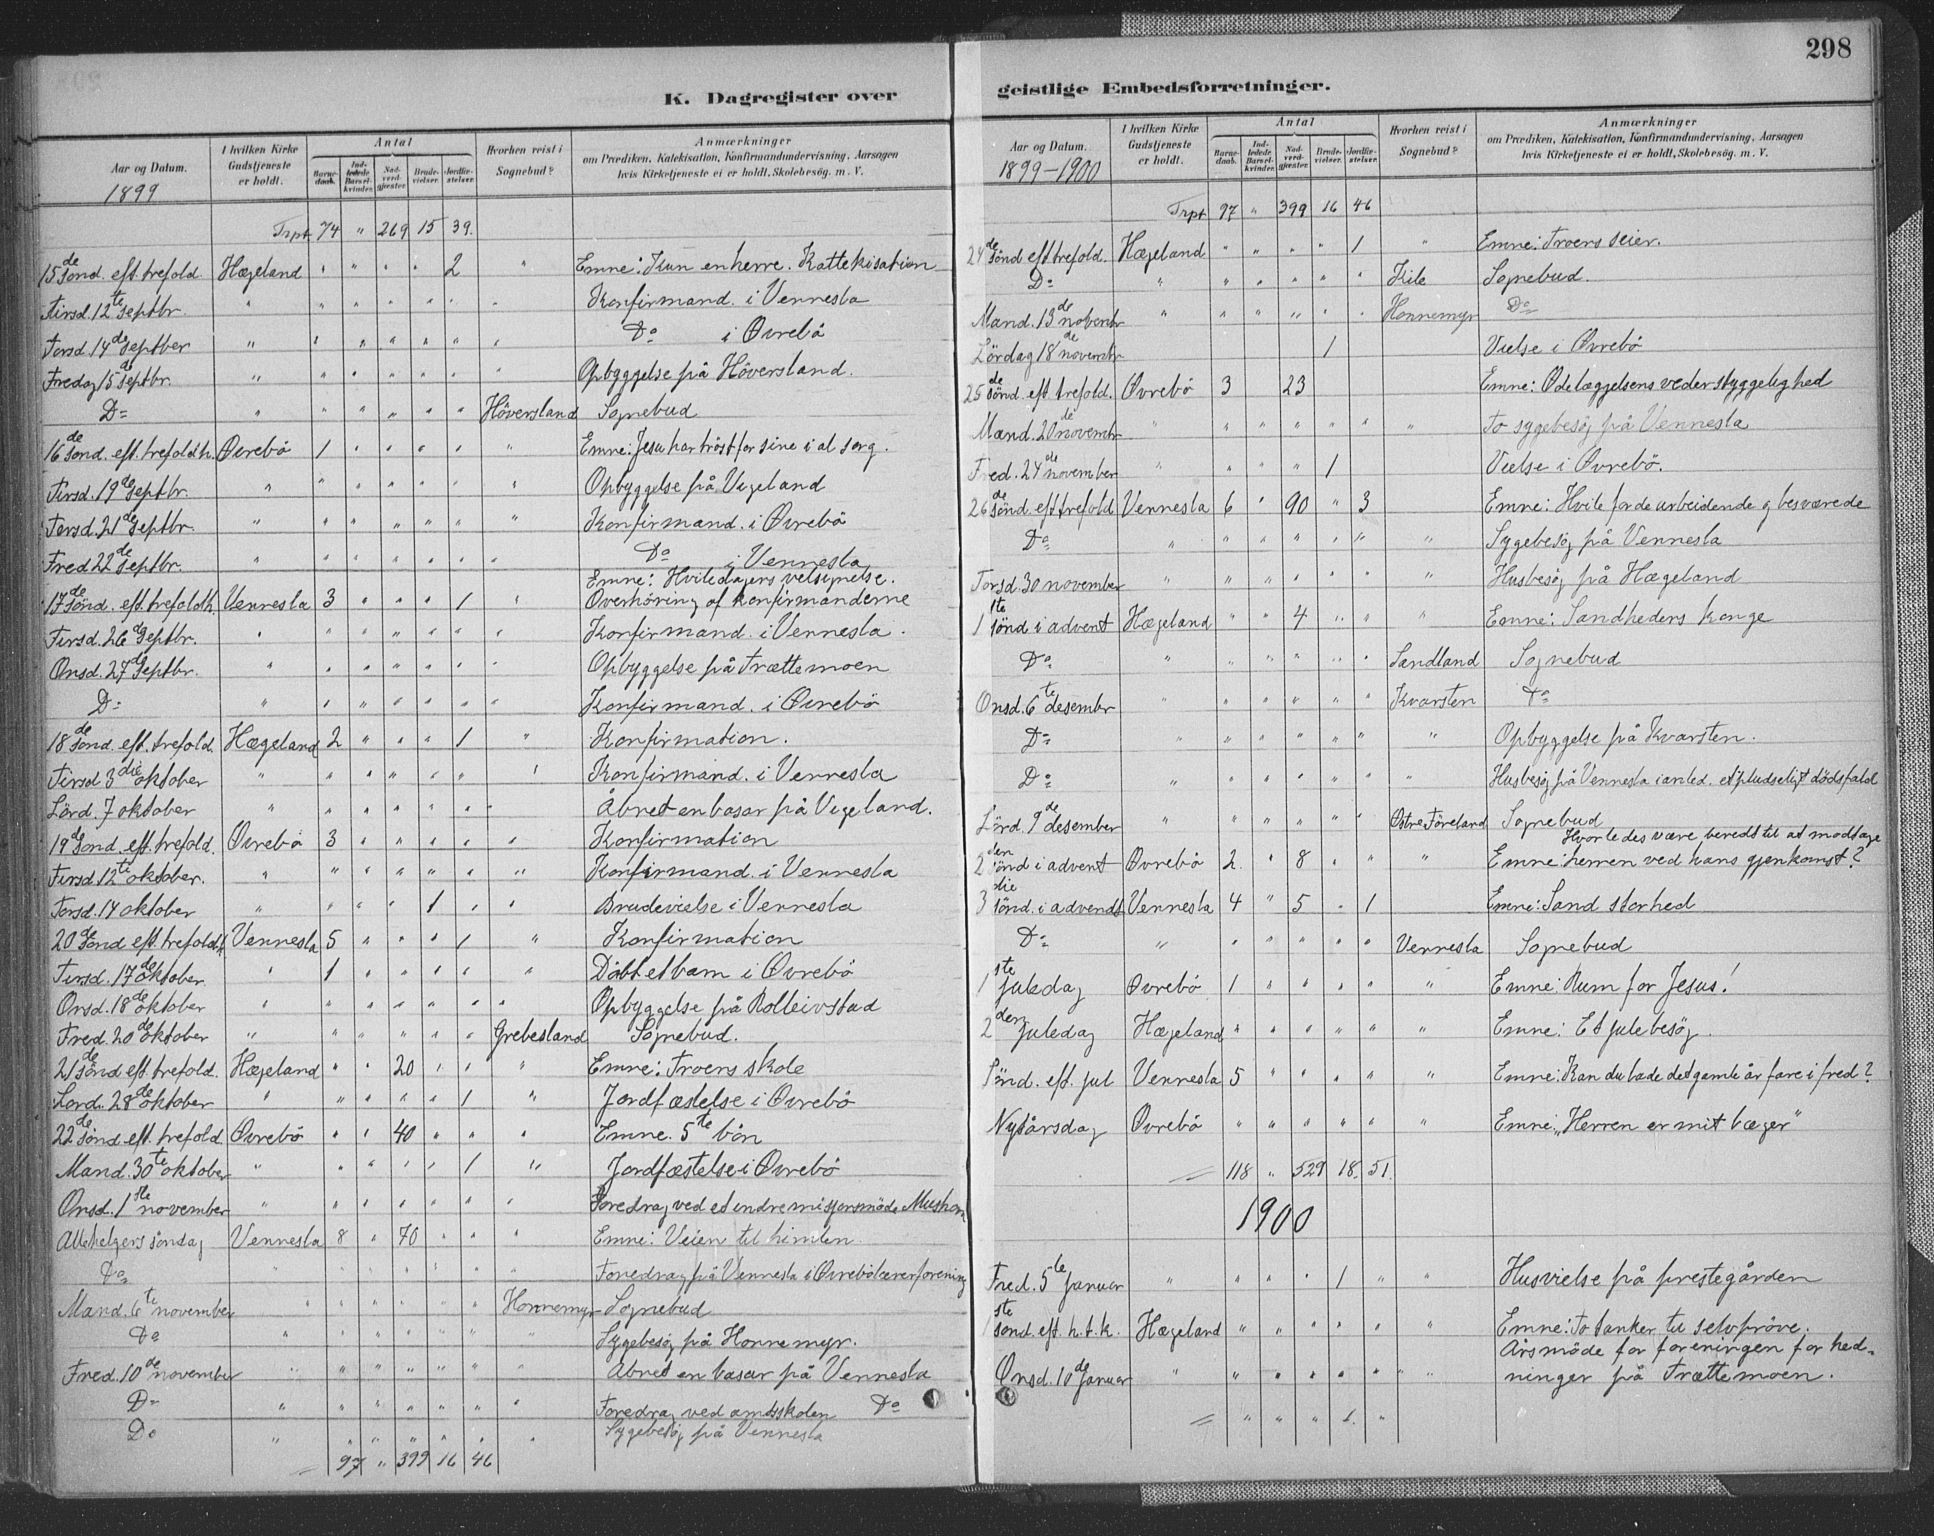 298
K. Dagregister over
geistlige Embedsforretninger.
Aar og Datum. 1899 | I hvilken Kirke Gudstjeneste er holdt. | Antal | Barnedaab. | Indledede Barselkvinder. | Nadverdgjester. | Brudevielser. | Jordfæstelser. | Hvorhen reist i Sognebud? | Anmærkninger om Prædiken, Katekisation, Konfirmandundervisning, Aarsagen hvis Kirketjeneste ei er holdt, Skolebesög. m. V.
Trpt. 74 " 269 15 39.
15de sönd. eft. trefold. Hægeland " " " " 2 " Emne: Kun en herre. Kattekisation
Tirsd. 12te septbr. " " " " " " " Konfirmand. i Vennesla
Torsd. 14de septber " " " " " " " Do i Øvrebö
Fredag 15de septbr. " " " " " " " Opbyggelse på Höversland.
Do " " " " " " Höversland Sognebud
16de sönd. eft. trefoldh. Øvrebö 1 " " " " " Emne: Jesu har tröst for sine i al sorg.
Tirsd. 19de septbr. " " " " " " " Opbyggelse på Vigeland
Torsd. 21de septbr. " " " " " " " Konfirmand. i Øvrebö
Fred 22de septbr. " " " " " " " Do i Vennesla
Emne: Hviledagens velsignelse.
17de sönd. eft. trefoldh. Vennesla 3 " " " 1 " Overhöring af konfirmanderne
Tirsd. 26de septbr. " " " " " " " Konfirmand. i Vennesla.
Onsd. 27de septbr. " " " " " " " Opbyggelse på Trættemoen
Do " " " " " " " Konfirmand. i Øvrebö
18de sönd. eft. trefold. Hægeland 2 " " " 1 " Konfirmation.
Tirsd 3die oktober " " " " " " " Konfirmand. i Vennesla
Lörd. 7 oktober " " " " " " " Åbnet en basar på Vigeland.
19de sönd. eft. trefold. Øvrebö 3 " " " " " Konfirmation
Tirsd 12te oktober. " " " " " " " Konfirmand. i Vennesla
Torsd. 14 oktober " " " " 1 " " Brudevielse i Vennesla
20de sönd eft. trefoldh. Vennesla 5 " " " 1 " Konfirmation
Tirsd. 17de oktober " 1 " " " " " Döbt et barn i Øvrebö
Onsd. 18de oktober " " " " " " " Opbyggelse på Rolleivstad
Fred. 20de oktober " " " " " " Grebesland Sognebud.
21de sönd eft trefold. Hægeland " " 20 " " " Emne: Troens skole
Lörd. 28de oktober " " " " " 1 " Jordfæstelse i Øvrebö
22de sönd eft. trefold Øvrebö " " 40 " " " Emne. 5te bön
Mand. 30te oktober " " " " " 1 " Jordfæstelse i Øvrebö
Onsd. 1ste november " " " " " " " Foredrag ved et indremisjonsmöde Mushom
Allehelgens söndag Vennesla 8 " 70 " " " Emne: Veien til himlen
Do " " " " " " " Foredrag på Vennesla i Øvrebö lærerforening
Mand. 6te november " " " " " " Honnemyr Sognebud
Do " " " " " " " Sygebesög på Honnemyr.
Fred. 10de november " " " " " " " Åbnet en basar på Vennesla
Do " " " " " " " Foredrag ved amtsskolen Do
Do " " " " " " " Sygebesög på Vennesla
97 " 399 16 46
Aar og Datum. 1899-1900 | I hvilken Kirke Gudstjeneste er holdt. | Antal | Barnedaab. | Indledede Barselkvinder. | Nadverdgjester. | Brudevielser. | Jordfæstelser. | Hvorhen reist i Sognebud? | Anmærkninger om Prædiken, Katekisation, Konfirmandundervisning, Aarsagen hvis Kirketjeneste ei er holdt, Skolebesög. m. V.
Trpt 97 " 399 16 46
24de sönd eft trefold. Hægeland " " " " 1 " Emne: Troens seier.
Do " " " " " " Kile Sognebud.
Mand. 13de novembr " " " " " " Honnemyr Do
Lördag 18de novembr 1 Vielse i Øvrebö
25de sönd. eft. trefold. Øvrebö 3 23 Emne: Ødelæggelsens vederstyggelighed
Mand. 20de novembr " " " " " " " To sygebesög på Vennesla
Fred. 24de november " " " " 1 Vielse i Øvrebö.
26de sönd. eft trefold Vennesla 6 " 90 " 3 Emne: Hvile for de arbeidende og besværede
Do " " " " " " " Sygebesög på Vennesla
Torsd. 30 november " " " " " " " Husbesög på Hægeland
1ste sönd i advent Hægeland " " 4 " " " Emne: Sandhedens konge
Do " " " " " " Sandland Sognebud
Onsd. 6te desembr " " " " " " Kvarsten Do
Do " " " " " " " Opbyggelse på Kvarsten.
Do " " " " " " " Husbesög på Vennesla i anled. et pludseligt dödsfald
Lörd. 9de desember " " " " " " Østre Föreland Sognebud
Hvorledes være beredt til at modtage
2den sönd i advent Øvrebö 2. " 8 " " " Emne: herren ved hans gjenkomst?
3die sönd. i advendt Vennesla 4 " 5 " 1 Emne: Sand storhed
Do " " " " " " Vennesla Sognebud
1ste juledag Øvrebö 1 " " " " " Emne: Rum for Jesus!
2den juledag Hægeland " " " " " " Emne: Et julebesög.
Sönd. eft. jul Vennesla 5 " " " " " Emne: Kan du lade det gamle år fare i fred?
Nytårsdag Øvrebö " " " " " " Emne: „Herren er mit bæger"
= 118 " 529 18. 51.
1900
Fred. 5te januar " " " " 1 " " Husvielse på prestegården
1ste sönd. eft. h. t. k. Hægeland " " " " " " Emne: To tanker til selvpröve.
Årsmöde for foreningen for hed-
Onsd. 10de januar " " " " " " " ninger på Trættemoen.
= " " " 1. "